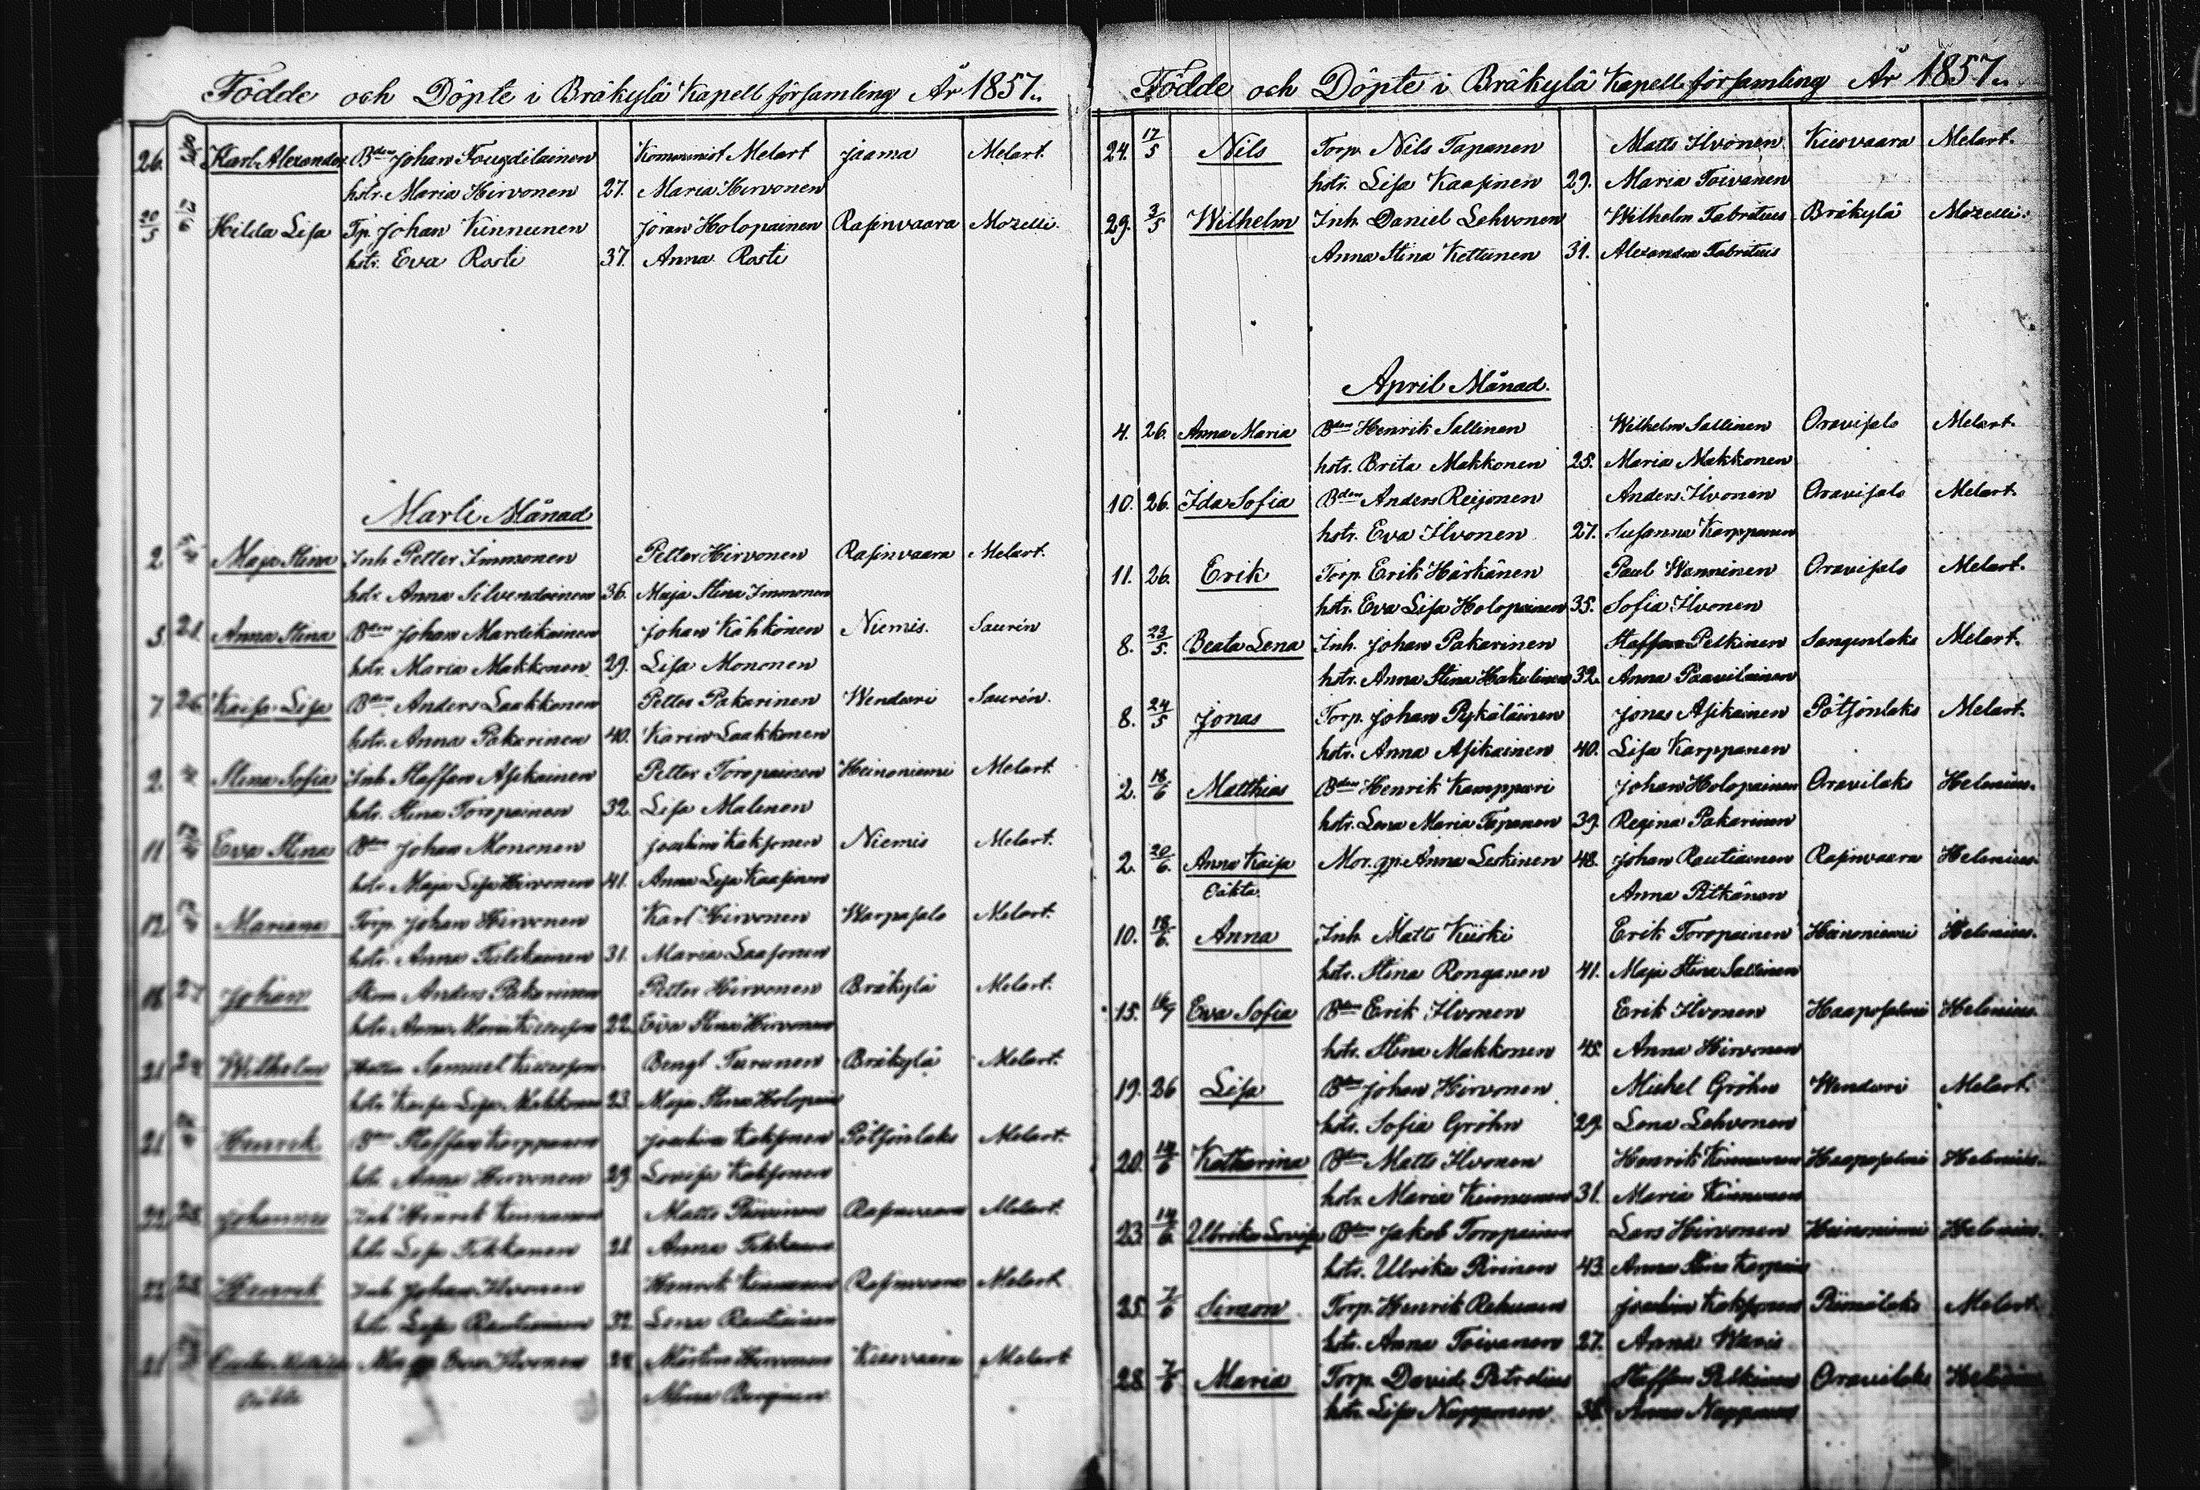 Födde och Döpte i Bräkylä Kapell församling År 1857.
26. Karl Alexander Bden Johan Tougdilainen Komminist Melart Jaama Melart.
hstr. Maria Hirvonen 27. Maria Hirvonen
20/5 Hilda Lisa Tp. Johan Kinnunen Jöran Holopainen Rasinvaara Mozelli.
hstr. Eva Rosti 37. Anna Rosti
Marti Månad
2 Maja Stina Inh. Petter Immonen Petter Hirvonen Rasinvaara Melart.
hstr. Anna Silvendoinen 36. Maja Stina Immonen
5 21. Anna Stina Bden Johan Mardikainen Johan Kähkönen Niemis. Saurén
hstr. Maria Makkonen 29. Lisa Mononen
7. 26 Kaisa Lisa Bden Anders Laakkonen Petter Pakarinen Wendari Saurén.
hstr. Anna Pakarinen 40. Karin Laakkonen
2. Stina Sofia Inh. Staffan Asikainen Petter Toropainen Heinoniemi Melart
hstr. Stina Toropainen 32. Lisa Malinen
11 Eva Stina Bden Johan Mononen Joachim Kaksonen Niemis Melart.
hstr. Maja Lisa Hirvonen 41. Anna Lisa Kaasinen
12 Mariana Torp. Johan Hirvonen Karl Hirvonen Warpasalo Melart.
hstr. Anna 31. Maria Laasonen
18 Johan Anders Pakarinen Petter Hirvonen Bräkylä Melart.
hstr. Anna Maria 22. Eva Stina Hirvonen
21 24 Wilhelm Samuel Bengt Turunen Bräkylä Melart.
hstr. Kaisa Lisa Makkonen 23. Maja Stina Holopain
21 Henrik Bden Staffan Karppanen Joachim Kaksonen Pötsönlaks Melart.
hstr. Anna Hirvonen 29. Lovisa Kaksonen
22 28 Johannes Inh. Henrik Kinnunen Matts Rasinvaara Melart.
hstr. Lisa Tikkanen 21 Anna Tikkanen
22 28 Henrik Inh. Johan Ilvonen Henrik Kinnunen Rasinvaara Melart
hstr. Lisa Rautiainen 32 Lena Rautiainen
21 Eva Ilvonen 24 Mårten Hirvonen Kiesvaara Melart
Oäkta
Födde och Döpte i Bräkylä Kapell församling År 1857.
24. 17/5 Nils Torp. Nils Tapanen Matts Ilvonen Kiesvaara Melart.
hstr. Lisa Kaasinen 29. Maria Toivanen
29. 3/5 Wilhelm Inh. Daniel Lehvonen Wilhelm Fabritius Bräkylä Mozelli.
Anna Stina Kettunen 31. Alexandra Fabritius
April Månad.
4. 26. Anna Maria Bden Henrik Sallinen Wilhelm Sallinen Oravisalo Melart.
hstr. Brita Makkonen 25. Maria Makkonen
10. 26. Ida Sofia Bden Anders Reijonen Anders Ilvonen Oravisalo Melart.
hstr. Eva Ilvonen 27. Susanna Karppanen
11. 26. Erik Torp. Erik Härkänen Paul Wanninen Oravisalo Melart.
hstr. Eva Lisa Holopainen 35. Sofia Ilvonen
8. 23/5. Beata Lena Inh. Johan Pakarinen Staffan Pelkinen Sangenlaks Melart.
hstr. Anna Stina Hakulinen 32. Anna Paavilainen
8. 24/5 Jonas Torp. Johan Pykäläinen Jonas Asikainen Pötsönlaks Melart.
hstr. Anna Asikainen 40. Lisa Karppanen
2. 18/6 Matthias Bden Henrik Kamppuri Johan Holopainen Oravilaks Helenius.
hstr. Lena Maria Tapanen 39. Regina Pakarinen
2. 20/6. Anna Kaisa Mor. gp. Anna Leskinen 48. Johan Rautiainen Rasinvaara Helenius.
Oäkta. Anna Pitkänen
10. 18/6. Anna Inh. Matts Kiiski Erik Toropainen Heinoniemi Helenius.
hstr. Stina Ronganen 41. Maja Stina Sallinen
15. 16/7 Eva Sofia Bden Erik Ilvonen Erik Ilvonen Haaposalmi Helenius.
hstr. Stina Makkonen 45. Anna Hirvonen
19. 26 Lisa Bden Johan Hirvonen Michel Gröhn Wendari Melart.
hstr. Sofia Gröhn 29. Lena Lehvonen
20. 14/6 Katharina Bden Matts Ilvonen Henrik Kinnunen Haaposalmi Helenius.
hstr. Maria Kinnunen 31. Maria Kinnunen
23. 14/6 Ulrika Lovisa Bden Jakob Toropainen Lars Hirvonen Heinoniemi Helenius.
hstr. Ulrika Piirinen 43. Anna Stina
25. 7/6 Simon Torp. Henrik Rahunen Joachim Kaksonen Melart.
hstr. Anna Toivanen 27. Anna Waris
28. 7/6 Maria Torp. David Petrelius Staffan Pelkinen Oravilaks Helenius
hstr. Lisa Nupponen 38. Anna Nupponen